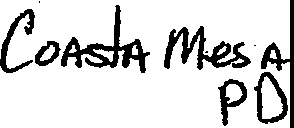 Coasta Mesa
PD